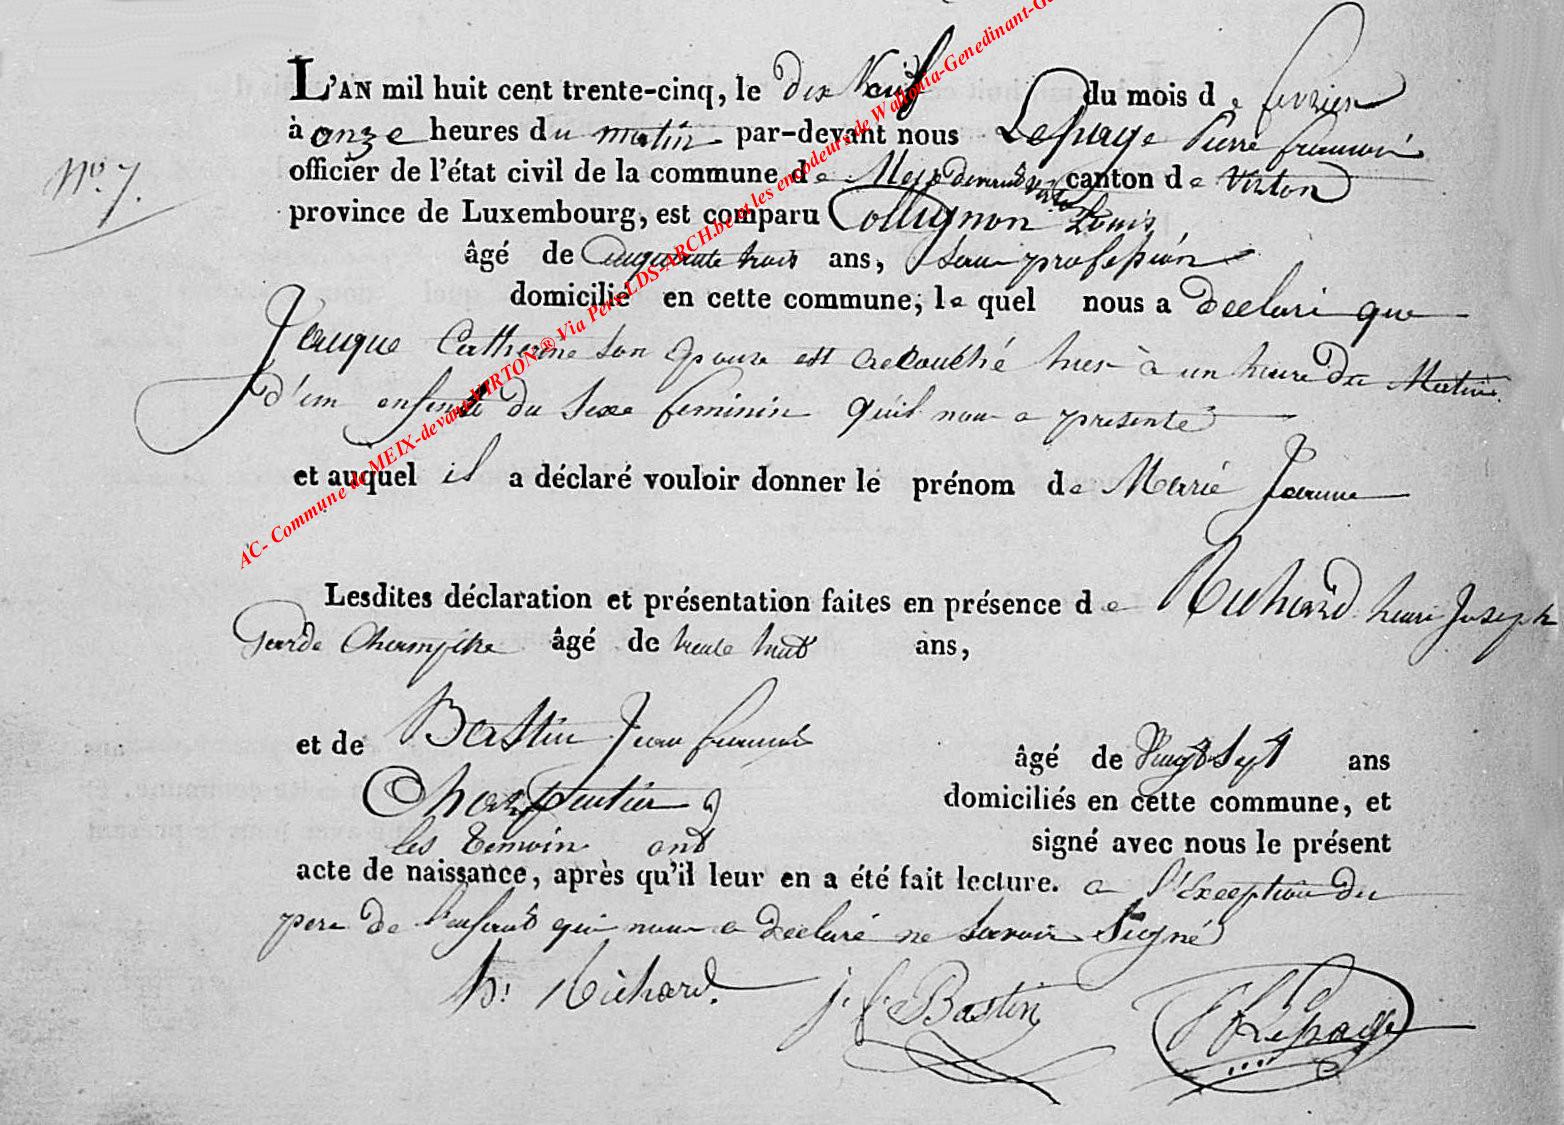 L'AN mil huit cent trente-cinq, le dix Neuf du mois de fevrier
à onze heures du matin par-devant nous Lepage Pierre francois
N° 7.
officier de l'état civil de la commune de Meix devant Virton canton de Virton
province de Luxembourg, est comparu Collignon Louis
âgé de Cinquante trois ans, Sans profession
domicilié en cette commune, le quel nous a declaré que
Jeauque Catherine Son Epouse est accouché hier à un heure du Matin
d'un enfant du Sexe feminin quil nous a presenté
et auquel il a déclaré vouloir donner le prénom de Marie Jeanne
Lesdites déclaration et présentation faites en présence de Richard henri Joseph
Garde Champetre âgé de trente huit ans,
et de Bastin Jean francois âgé de Vingt Sept ans
Charpentier domiciliés en cette commune, et
les temoin ont signé avec nous le présent
acte de naissance, après qu'il leur en a été fait lecture. a l'Exception du
pere de l'enfant qui nous a declaré ne Savoir Signé
h: Richard. j. f. Bastin P F Lepage
AC- Commune de MEIX-devant-VIRTON ® Via Pers-LDS-ARCH.be et les encodeurs de Wallonia-Genedinant-G